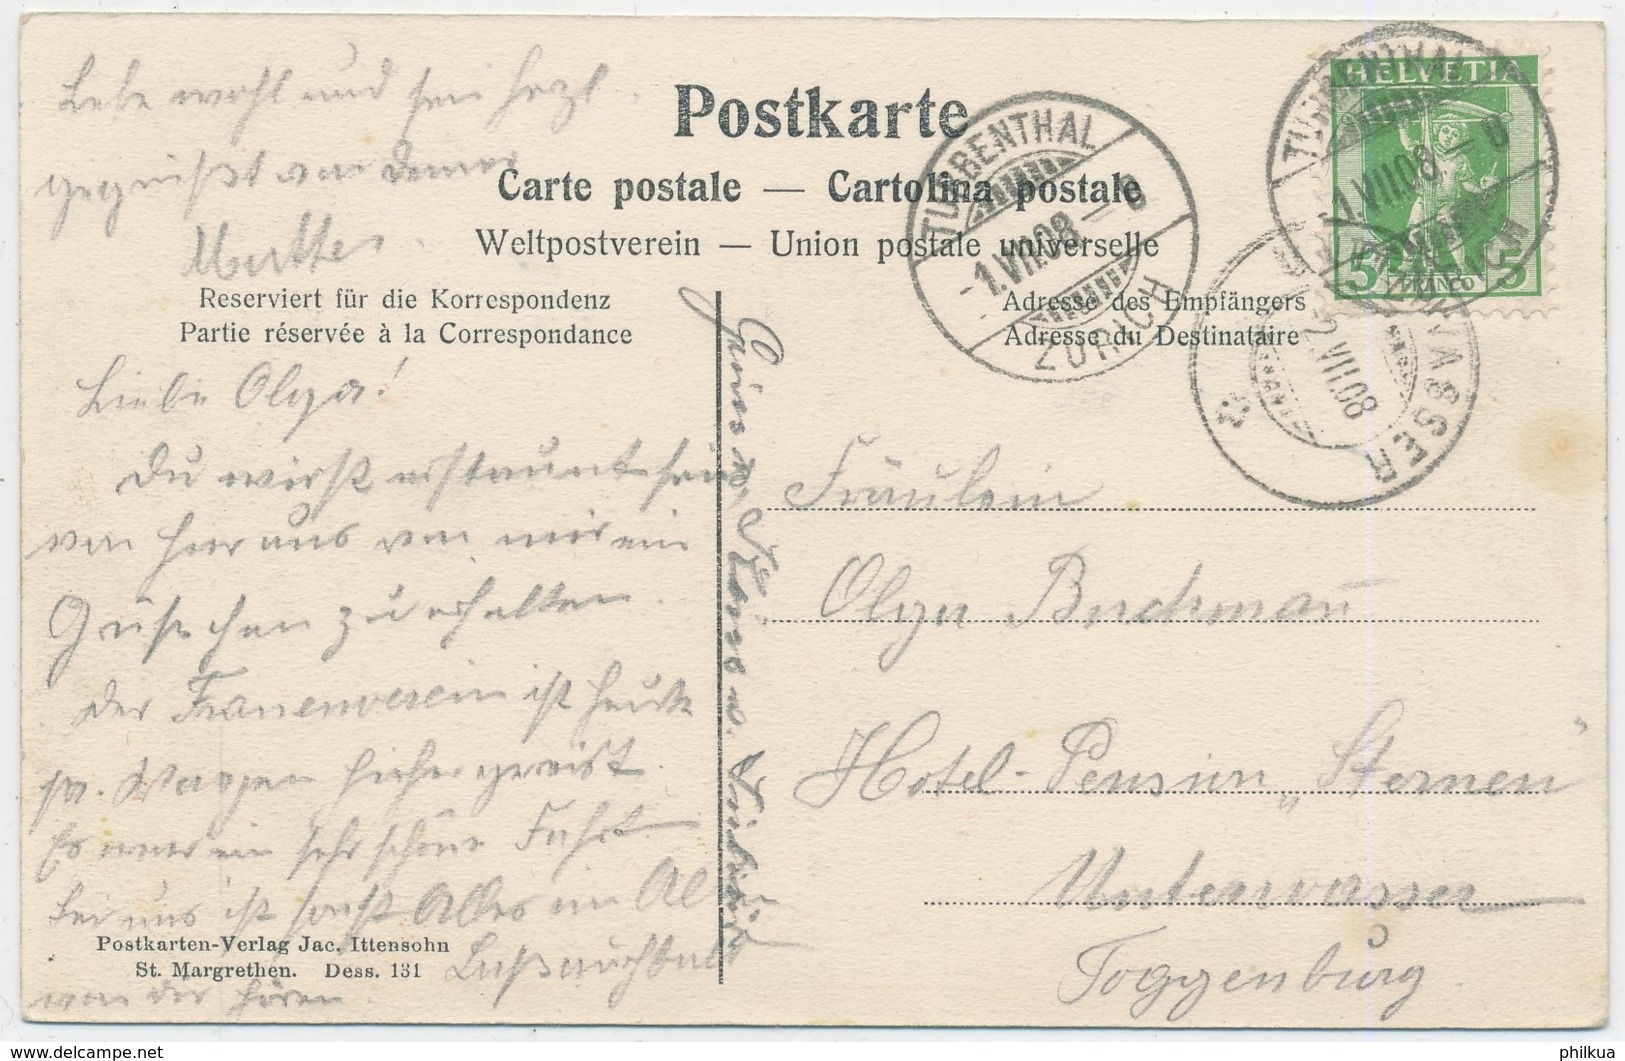 Lebe wohl und sei herzl.
gegrüßt von Deiner
Postkarte
Carte postale — Cartolina postale
Weltpostverein — Union postale universelle
Reserviert für die Korrespondenz
Partie réservée à la Correspondance
Adresse des Empfängers
Adresse du Destinataire
HELVETIA
5 FRANCO 5
TURBENTHAL
1.VII.08.–8
ZÜRICH
TURBENTHAL
1.VII.08.–8
ZÜRICH
WASSER
2.VII.08
Liebe Olga!
Du wirst erstaunt sein
von hier aus von mir ein
Grüßchen zu erhalten.
Der Frauenverein ist heute
pr. Wagen hieher gereist.
Es war ein sehr schöne Fahrt
Bei uns ist sonst Alles im Al
Laß auch bald
von dir hören
Postkarten-Verlag Jac. Ittensohn
St. Margrethen. Dess. 131
Fräulein
Olga Buchman̄
Hotel-Pension „Sternen“
Unterwasser
Toggenburg
philkua